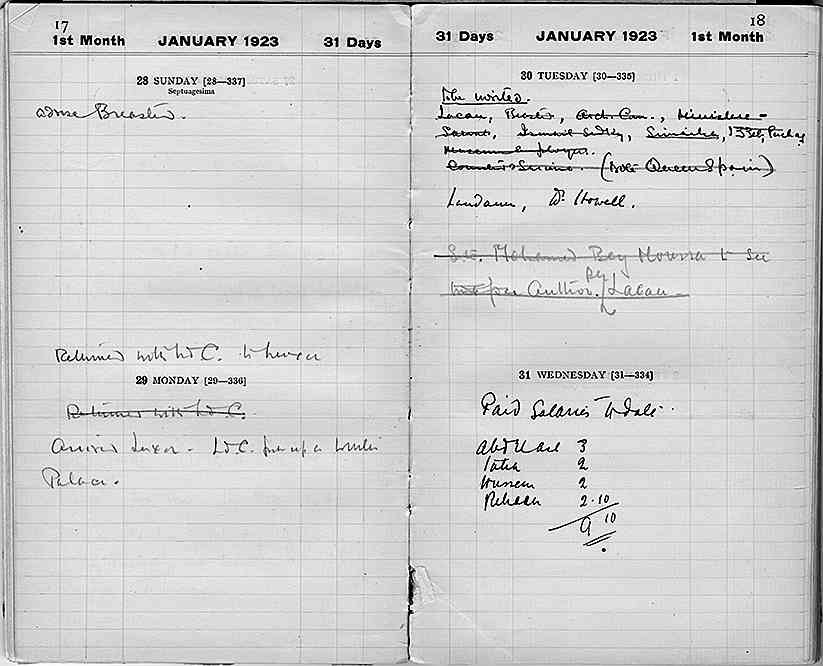 17
1st Month JANUARY 1923 31 Days
28 SUNDAY [28—337]
Septuagesima
Breasted.
Returned with Ld C. to Luxor
29 MONDAY [29—336]
Returned with Ld C.
Arrived Luxor - Ld. C. put up a Winter
Palace.
18
31 Days JANUARY 1923 1st Month
30 TUESDAY [30—335]
To be invited.
Lacau, Breasted, Arch. Com., Ministers -
Ismail Sidky,
(Queen Spain)
Dr Howell.
S.E. Mohamed Bey Moussa to see
per Author. by Lacau
31 WEDNESDAY [31—334]
Paid Salaries to date.
Abd el Aal 3
2
Hussein 2
2.10
9 10